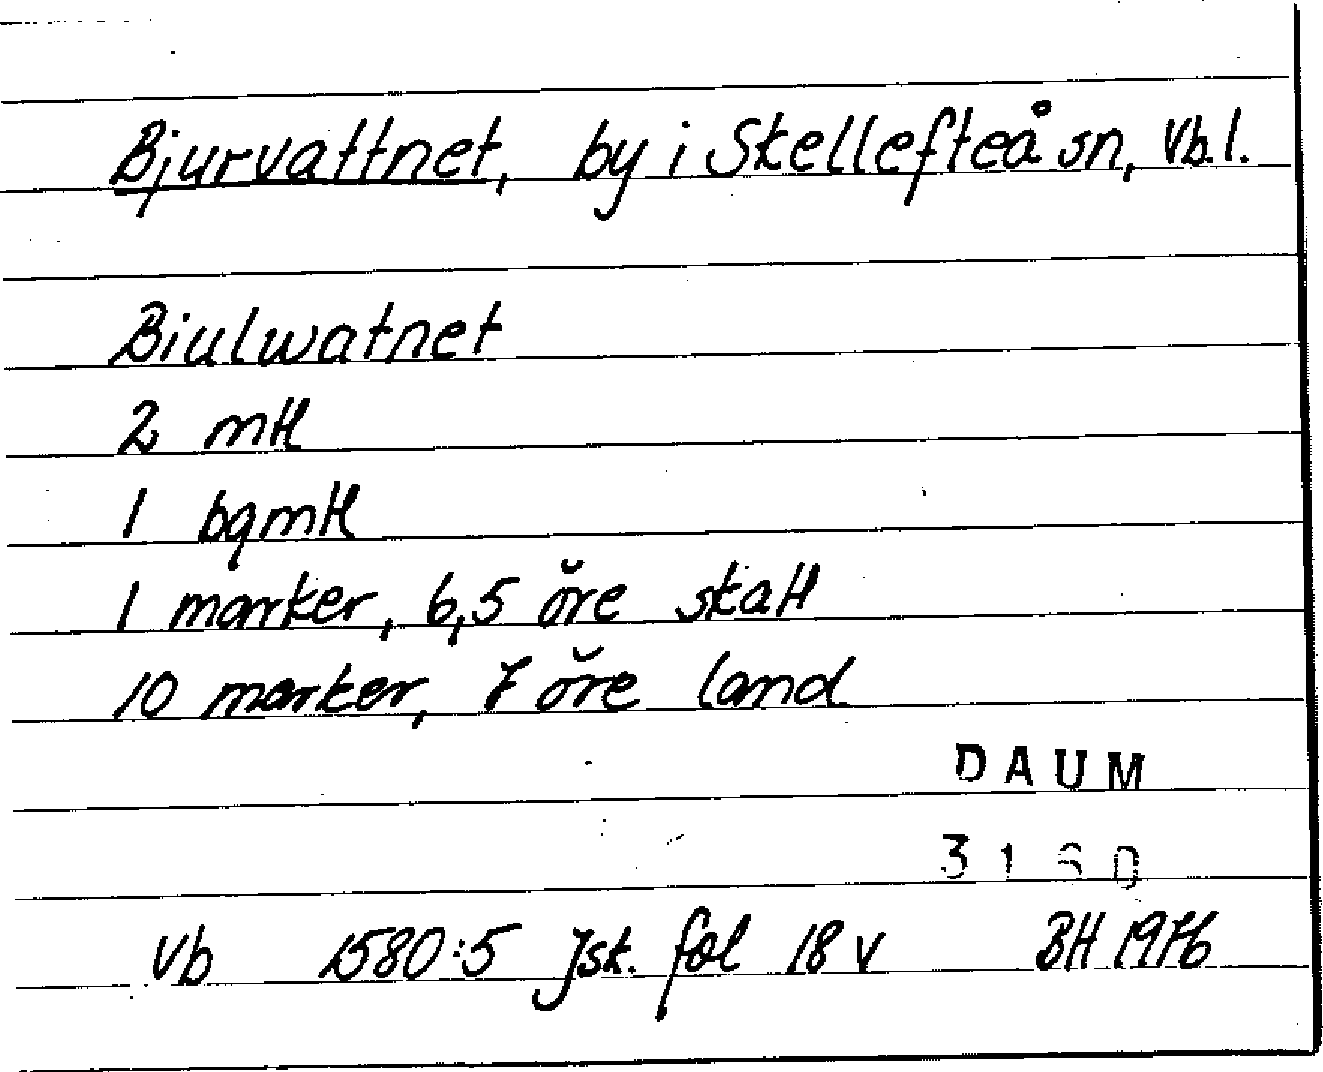 Bjurvattnet, by i Skellefteå sn, Vb.l.
Biulwatnet
2 mtl
1 bgmtl
1 marker, 6,5 öre skatt
10 marker, 7 öre land
DAUM
3160
Vb 1580:5 Jsk. fol 18 v BH 1976